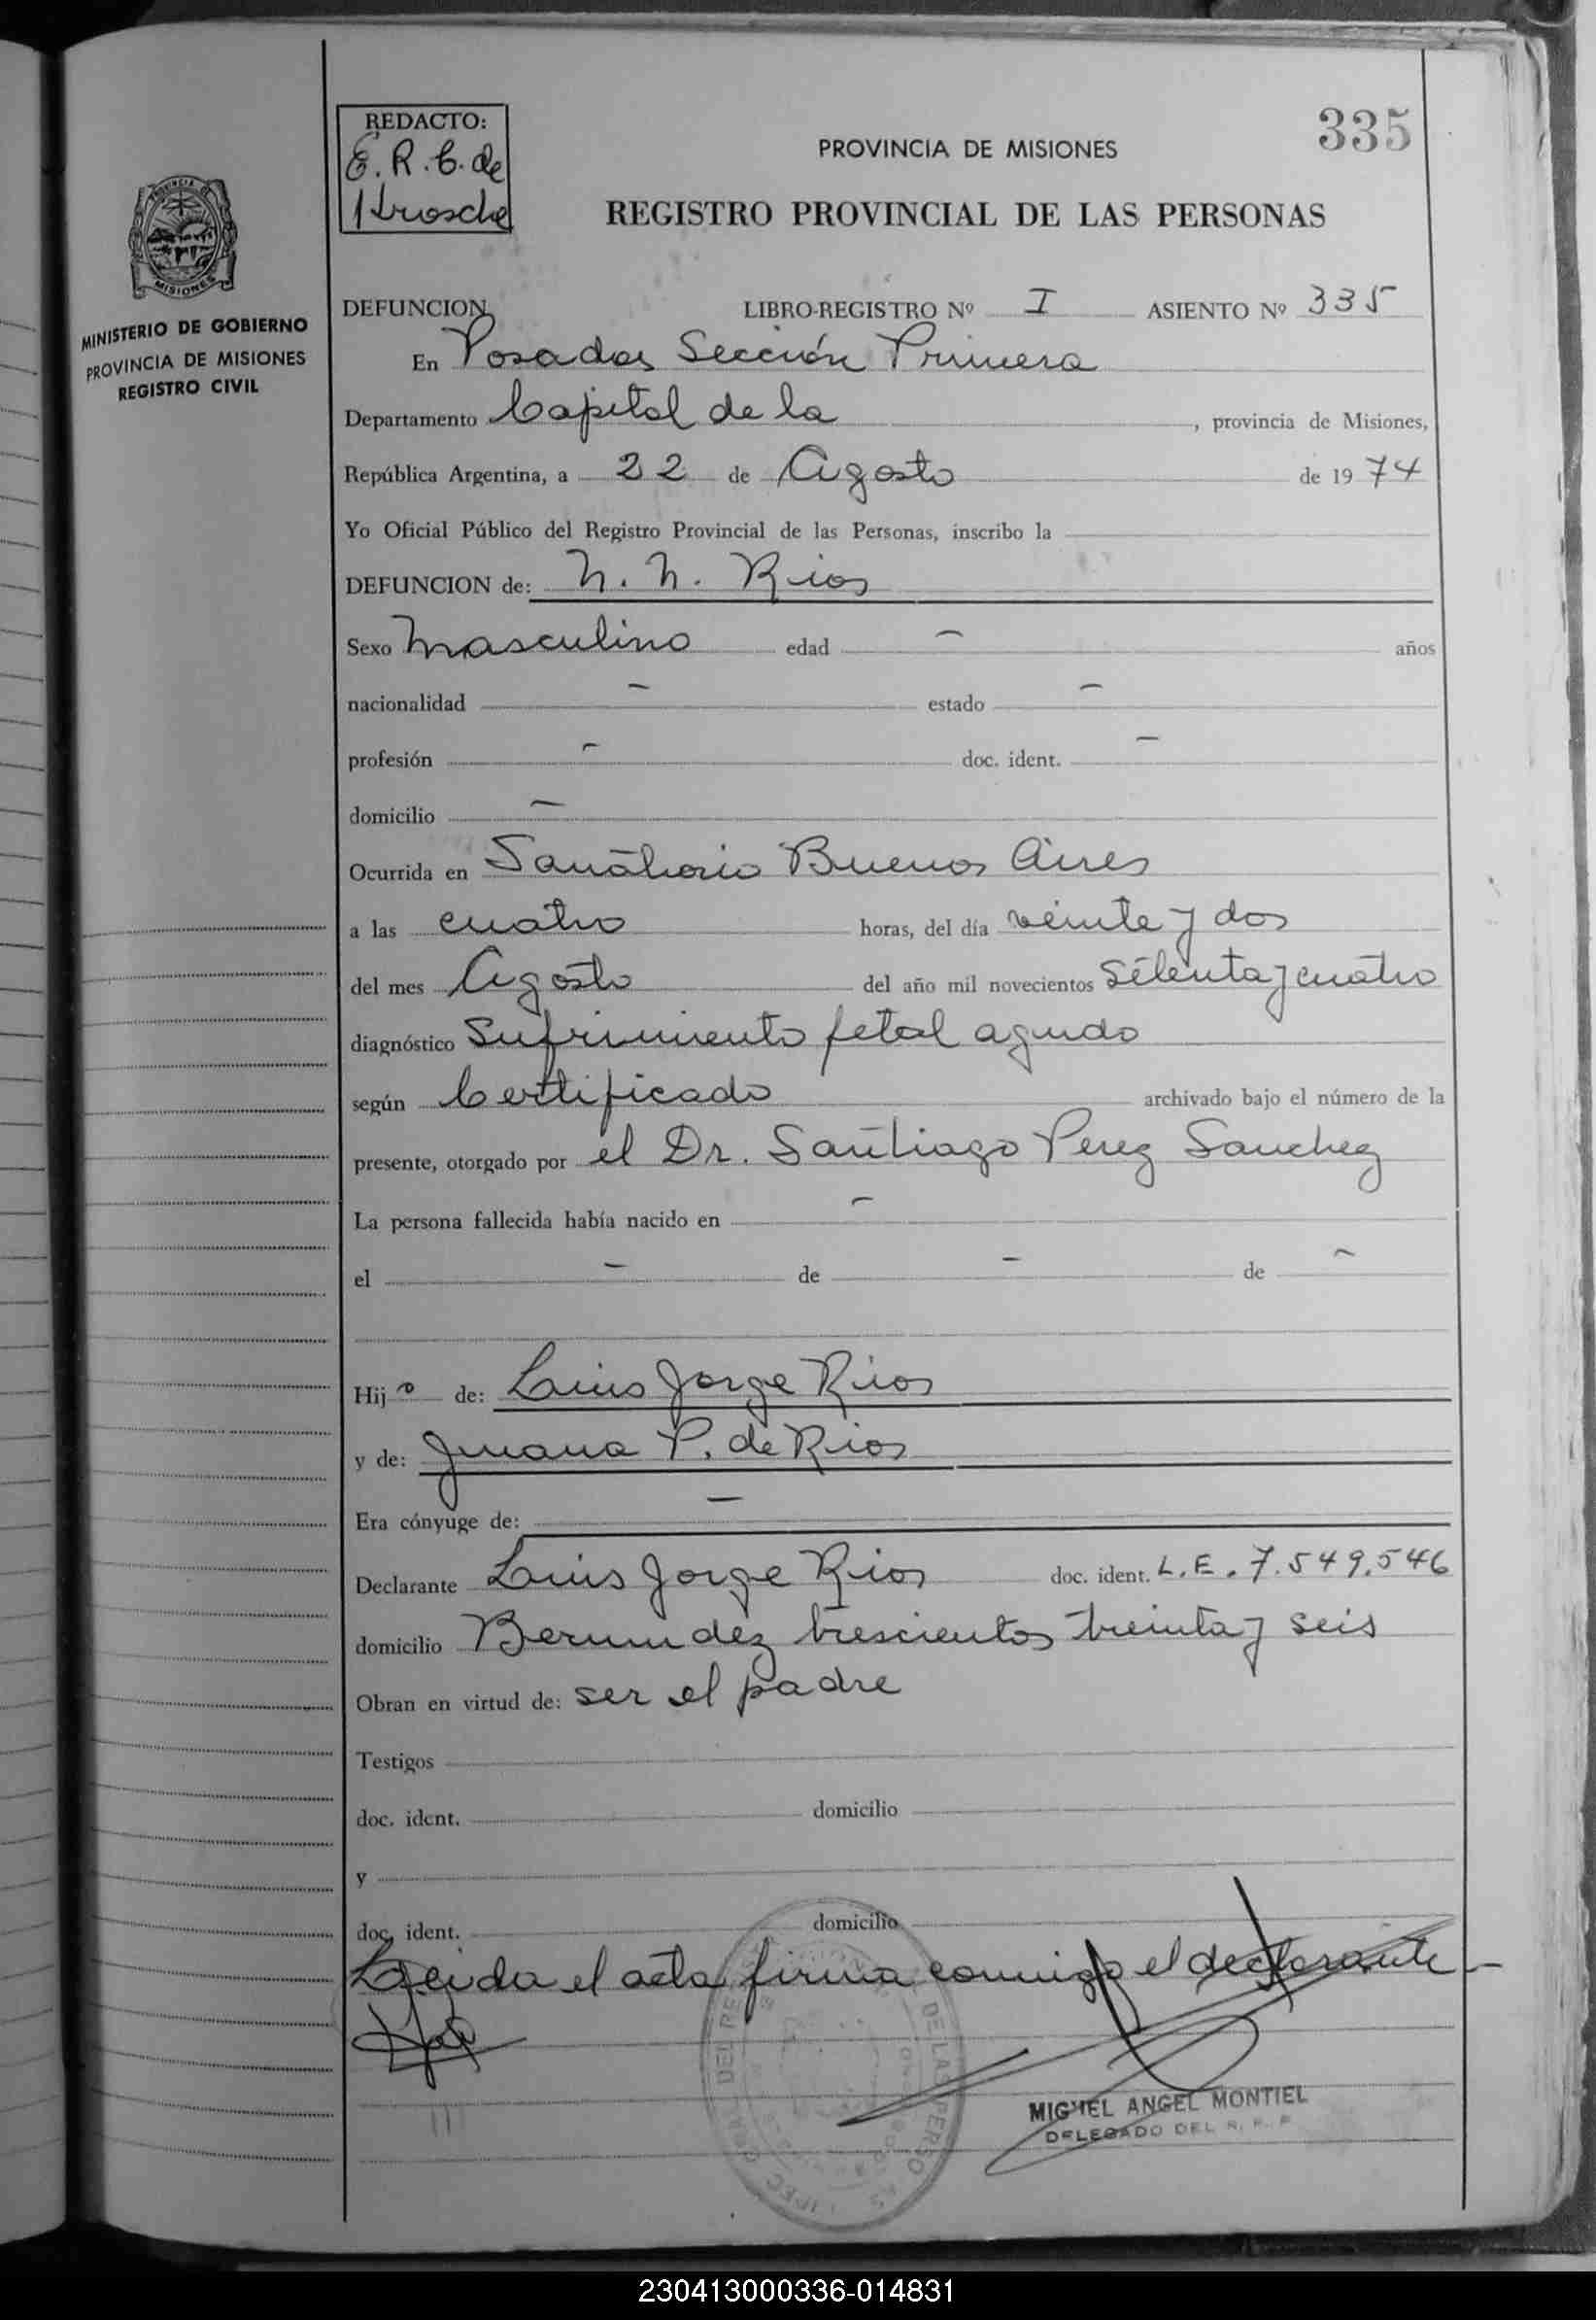 335
REDACTO:
E. R. C. de
Krosche
PROVINCIA DE MISIONES
REGISTRO PROVINCIAL DE LAS PERSONAS
PROVINCIA DE
MISIONES
MINISTERIO DE GOBIERNO
PROVINCIA DE MISIONES
REGISTRO CIVIL
DEFUNCION LIBRO-REGISTRO Nº I ASIENTO Nº 335
En Posadas Sección Primera
Departamento Capital de la , provincia de Misiones,
República Argentina, a 22 de Agosto de 1974
Yo Oficial Público del Registro Provincial de las Personas, inscribo la
DEFUNCION de: N. N. Rios
Sexo Masculino edad - años
nacionalidad - estado -
profesión - doc. ident. -
domicilio -
Ocurrida en Sanatorio Buenos Aires
a las cuatro horas, del día veinte y dos
del mes Agosto del año mil novecientos setenta y cuatro
diagnóstico Sufrimiento fetal agudo
según Certificado archivado bajo el número de la
presente, otorgado por el Dr. Santiago Perez Sanchez
La persona fallecida había nacido en -
el - de - de -
Hijo de: Luis Jorge Rios
y de: Juana P. de Rios
Era cónyuge de: -
Declarante Luis Jorge Rios doc. ident. L.E. 7.549.546
domicilio Bermudez trescientos treinta y seis
Obran en virtud de: ser el padre
Testigos
doc. ident. domicilio
y
doc. ident. domicilio
Leida el acta firma conmigo el declarante -
MIGUEL ANGEL MONTIEL
DELEGADO DEL R. P. P.
230413000336-014831